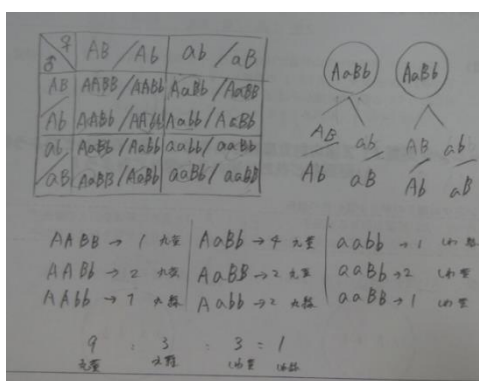 ♀ AB / Ab ab / aB
♂
AB AABB / AABb AaBb / AaBB
Ab AABb / AAbb Aabb / AaBb
ab AaBb / Aabb aabb / aaBb
aB AaBB / AaBb aaBb / aaBB
AaBb AaBb
AB ab AB ab
Ab aB Ab aB
AABB → 1 丸黄 AaBb → 4 丸黄 aabb → 1 しわ緑
AABb → 2 丸黄 AaBB → 2 丸黄 aaBb → 2 しわ黄
AAbb → 1 丸緑 Aabb → 2 丸緑 aaBB → 1 しわ黄
9 : 3 : 3 : 1
丸黄 丸緑 しわ黄 しわ緑